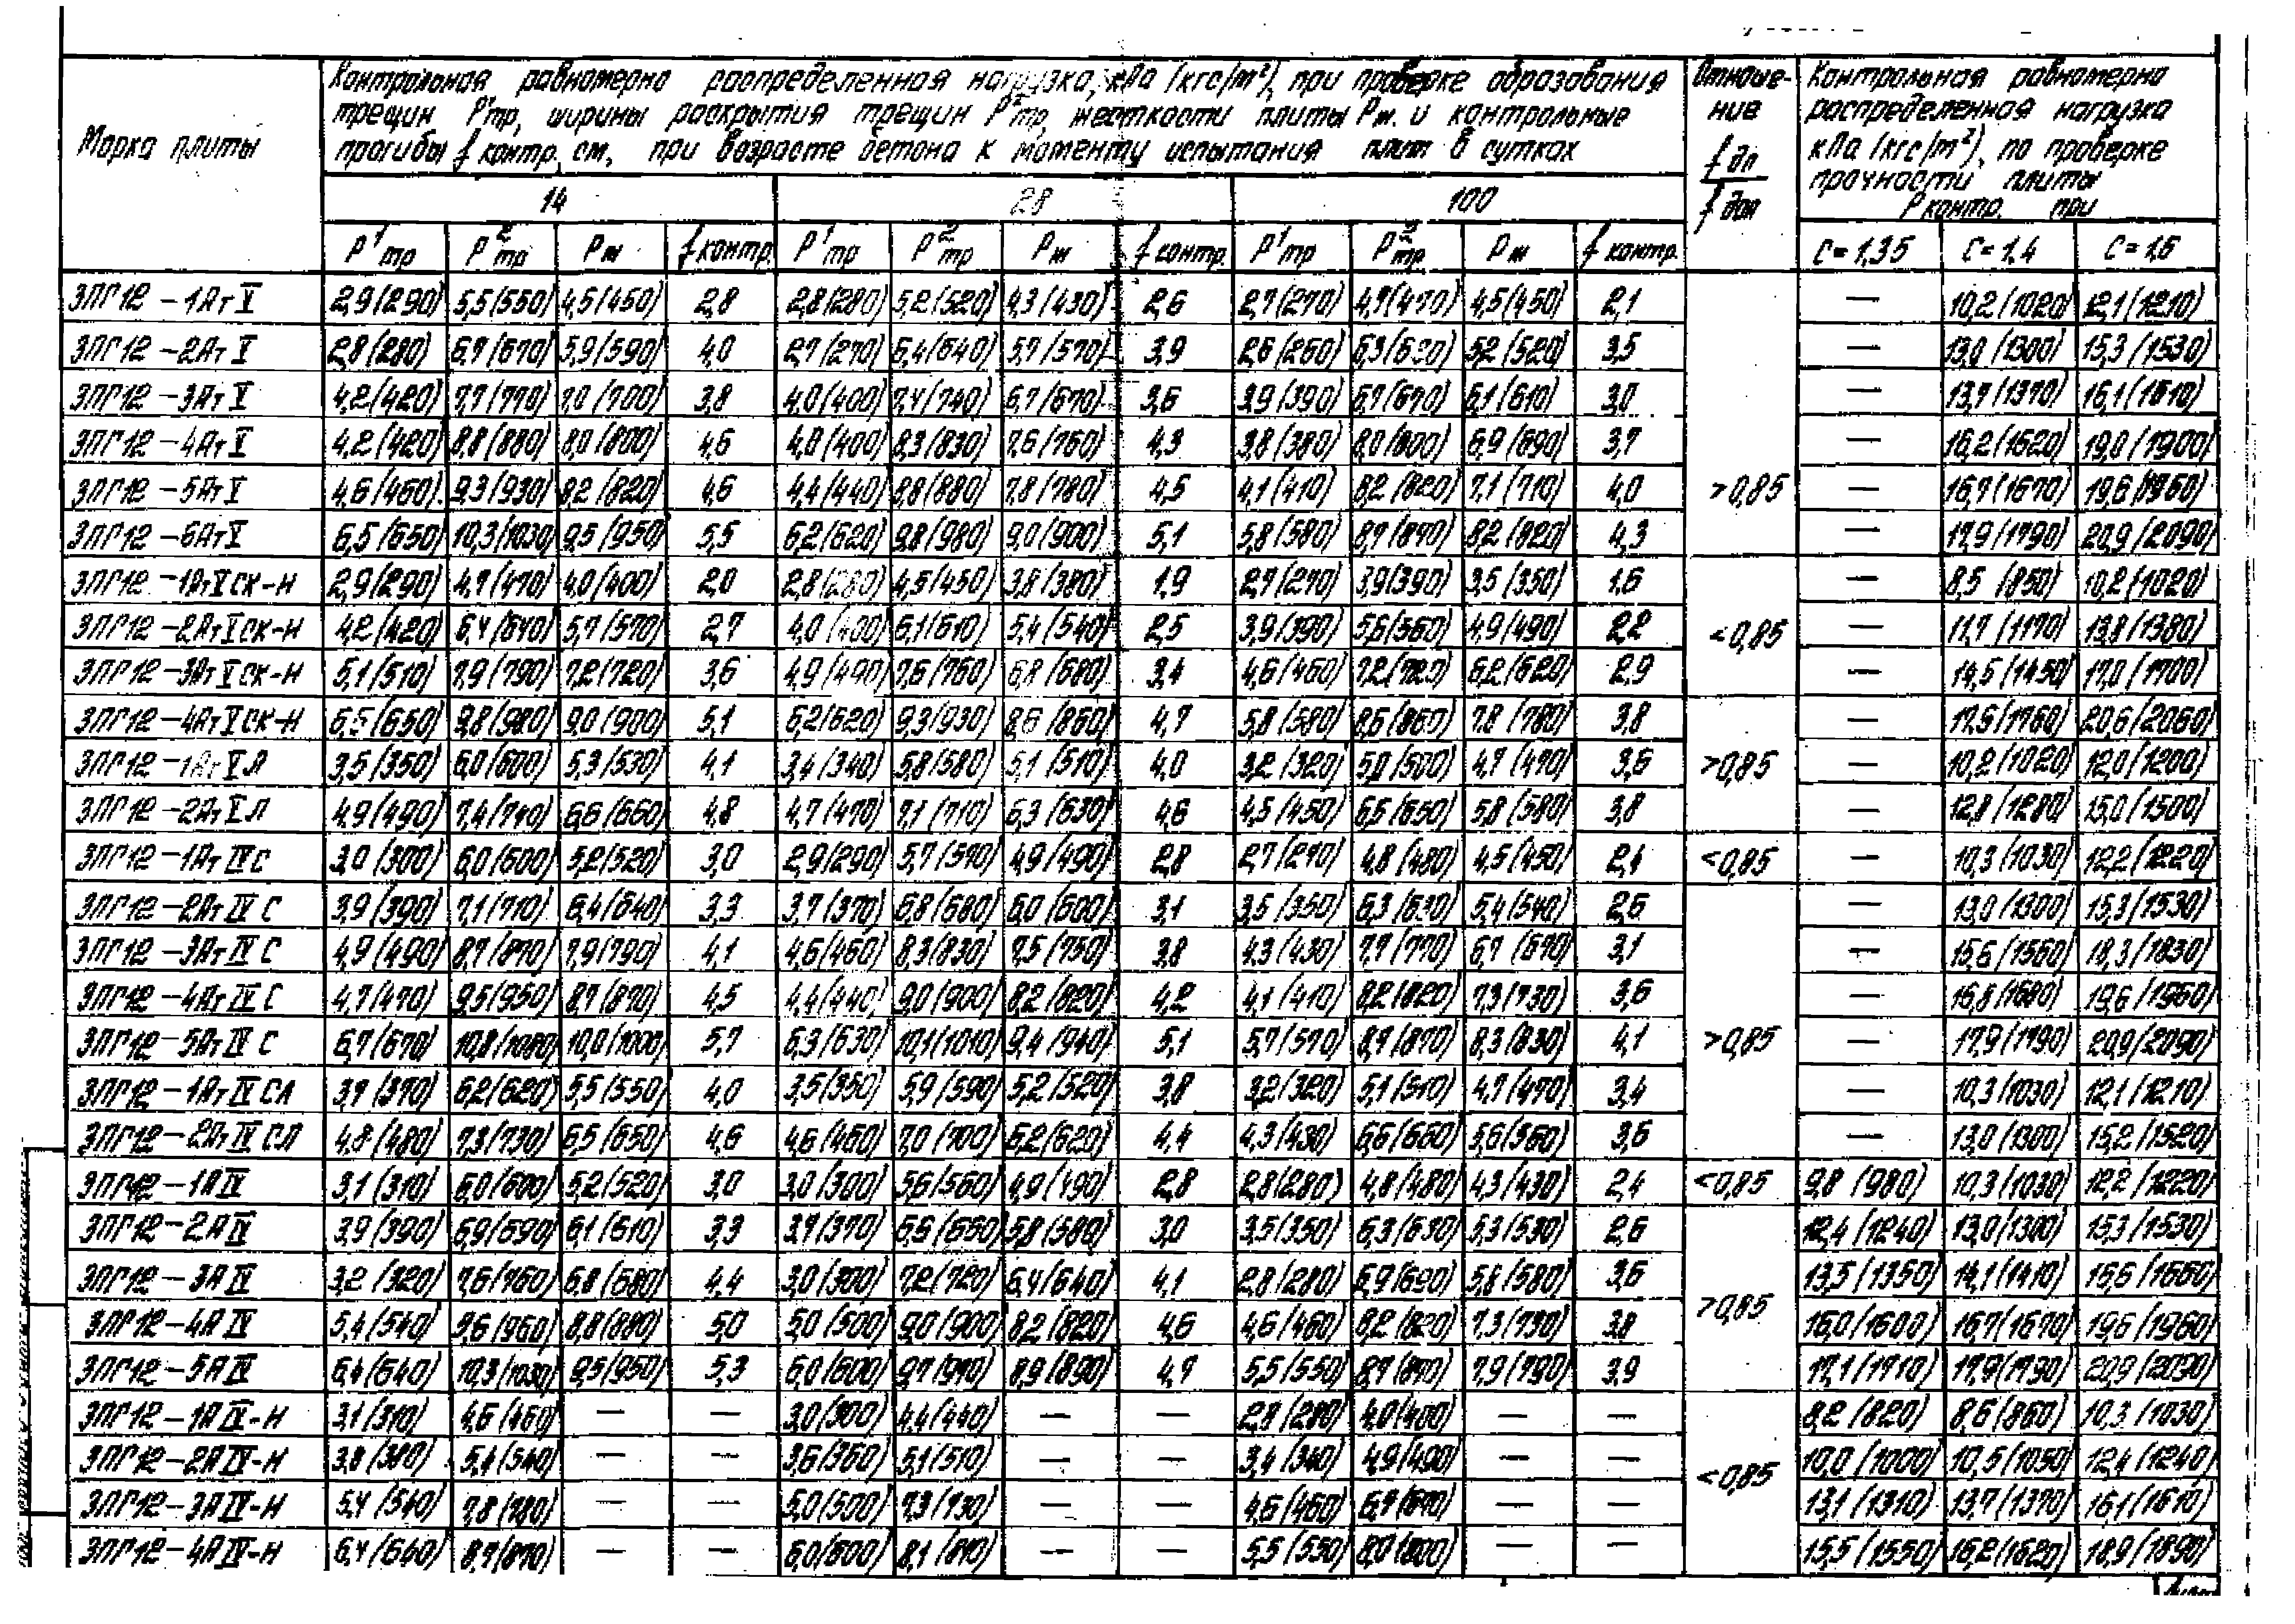 Марка плиты
Контрольная равномерно распределенная нагрузка, кПа (кгс/м²), при проверке образования
трещин P¹тр, ширины раскрытия трещин P²тр, жесткости плиты Pж и контрольные
прогибы f контр, см, при возрасте бетона к моменту испытания плит в сутках
Отноше-
ние
f дл
f доп
Контрольная равномерно
распределенная нагрузка
кПа (кгс/м²), по проверке
прочности плиты
P контр. при
14 28 100
P¹тр P²тр Pж f контр. P¹тр P²тр Pж f контр. P¹тр P²тр Pж f контр. C=1,35 C=1,4 C=1,6
3ПГ12-1АтV 2,9(290) 5,5(550) 4,5(450) 2,8 2,8(280) 5,2(520) 4,3(430) 2,6 2,7(270) 4,7(470) 4,5(450) 2,1 — 10,2(1020) 12,1(1210)
3ПГ12-2АтV 2,8(280) 6,7(670) 5,9(590) 4,0 2,7(270) 6,4(640) 5,7(570) 3,9 2,6(260) 6,3(630) 5,2(520) 3,5 — 13,0(1300) 15,3(1530)
3ПГ12-3АтV 4,2(420) 7,7(770) 7,0(700) 3,8 4,0(400) 7,4(740) 6,7(670) 3,6 3,9(390) 6,7(670) 6,1(610) 3,0 — 13,7(1370) 16,1(1610)
3ПГ12-4АтV 4,2(420) 8,8(880) 8,0(800) 4,6 4,0(400) 8,3(830) 7,6(760) 4,3 3,8(380) 8,0(800) 6,9(690) 3,7 — 16,2(1620) 19,0(1900)
3ПГ12-5АтV 4,6(460) 9,3(930) 8,2(820) 4,6 4,4(440) 8,8(880) 7,8(780) 4,5 4,1(410) 8,2(820) 7,1(710) 4,0 >0,85 — 16,7(1670) 19,6(1960)
3ПГ12-6АтV 6,5(650) 10,3(1030) 9,5(950) 5,5 6,2(620) 9,8(980) 9,0(900) 5,1 5,8(580) 8,7(870) 8,2(820) 4,3 — 17,9(1790) 20,9(2090)
3ПГ12-1АтVСК-Н 2,9(290) 4,7(470) 4,0(400) 2,0 2,8(280) 4,5(450) 3,8(380) 1,9 2,7(270) 3,9(390) 3,5(350) 1,6 — 8,5(850) 10,2(1020)
3ПГ12-2АтVСК-Н 4,2(420) 6,4(640) 5,7(570) 2,7 4,0(400) 6,1(610) 5,4(540) 2,5 3,9(390) 5,6(560) 4,9(490) 2,2 <0,85 — 11,7(1170) 13,8(1380)
3ПГ12-3АтVСК-Н 5,1(510) 7,9(790) 7,2(720) 3,6 4,9(490) 7,6(760) 6,8(680) 3,4 4,6(460) 7,2(720) 6,2(620) 2,9 — 14,5(1450) 17,0(1700)
3ПГ12-4АтVСК-Н 6,5(650) 9,8(980) 9,0(900) 5,1 6,2(620) 9,3(930) 8,6(860) 4,7 5,8(580) 8,6(860) 7,8(780) 3,8 — 17,6(1760) 20,6(2060)
3ПГ12-1АтVЛ 3,5(350) 6,0(600) 5,3(530) 4,1 3,4(340) 5,8(580) 5,1(510) 4,0 3,2(320) 5,0(500) 4,7(470) 3,6 >0,85 — 10,2(1020) 12,0(1200)
3ПГ12-2АтVЛ 4,9(490) 7,4(740) 6,6(660) 4,8 4,7(470) 7,1(710) 6,3(630) 4,6 4,5(450) 6,5(650) 5,8(580) 3,8 — 12,8(1280) 15,0(1500)
3ПГ12-1АтIVС 3,0(300) 6,0(600) 5,2(520) 3,0 2,9(290) 5,7(570) 4,9(490) 2,8 2,7(270) 4,8(480) 4,5(450) 2,4 <0,85 — 10,3(1030) 12,2(1220)
3ПГ12-2АтIVС 3,9(390) 7,1(710) 6,4(640) 3,3 3,7(370) 6,8(680) 6,0(600) 3,1 3,5(350) 6,3(630) 5,4(540) 2,6 — 13,0(1300) 15,3(1530)
3ПГ12-3АтIVС 4,9(490) 8,7(870) 7,9(790) 4,1 4,6(460) 8,3(830) 7,5(750) 3,8 4,3(430) 7,7(770) 6,7(670) 3,1 — 15,6(1560) 18,3(1830)
3ПГ12-4АтIVС 4,7(470) 9,5(950) 8,7(870) 4,5 4,4(440) 9,0(900) 8,2(820) 4,2 4,1(410) 8,2(820) 7,3(730) 3,6 — 16,8(1680) 19,6(1960)
3ПГ12-5АтIVС 6,7(670) 10,8(1080) 10,0(1000) 5,7 6,3(630) 10,1(1010) 9,4(940) 5,1 5,7(570) 8,7(870) 8,3(830) 4,1 >0,85 — 17,9(1790) 20,9(2090)
3ПГ12-1АтIVСЛ 3,7(370) 6,2(620) 5,5(550) 4,0 3,5(350) 5,9(590) 5,2(520) 3,8 3,2(320) 5,1(510) 4,7(470) 3,4 — 10,3(1030) 12,1(1210)
3ПГ12-2АтIVСЛ 4,8(480) 7,3(730) 6,5(650) 4,6 4,6(460) 7,0(700) 6,2(620) 4,4 4,3(430) 6,6(660) 5,6(560) 3,6 — 13,0(1300) 15,2(1520)
3ПГ12-1АIV 3,1(310) 6,0(600) 5,2(520) 3,0 3,0(300) 5,6(560) 4,9(490) 2,8 2,8(280) 4,8(480) 4,3(430) 2,4 <0,85 9,8(980) 10,3(1030) 12,2(1220)
3ПГ12-2АIV 3,9(390) 6,9(690) 6,1(610) 3,3 3,7(370) 6,6(660) 5,8(580) 3,0 3,5(350) 6,3(630) 5,3(530) 2,6 12,4(1240) 13,0(1300) 15,3(1530)
3ПГ12-3АIV 3,2(320) 7,6(760) 6,8(680) 4,4 3,0(300) 7,2(720) 6,4(640) 4,1 2,8(280) 6,9(690) 5,8(580) 3,6 13,5(1350) 14,1(1410) 16,6(1660)
3ПГ12-4АIV 5,4(540) 9,6(960) 8,8(880) 5,0 5,0(500) 9,0(900) 8,2(820) 4,6 4,6(460) 8,2(820) 7,3(730) 3,8 >0,85 16,0(1600) 16,7(1670) 19,6(1960)
3ПГ12-5АIV 6,4(640) 10,3(1030) 9,5(950) 5,3 6,0(600) 9,7(970) 8,9(890) 4,7 5,5(550) 8,7(870) 7,9(790) 3,9 17,1(1710) 17,9(1790) 20,9(2090)
3ПГ12-1АIV-Н 3,1(310) 4,6(460) — — 3,0(300) 4,4(440) — — 2,8(280) 4,0(400) — — 8,2(820) 8,6(860) 10,3(1030)
3ПГ12-2АIV-Н 3,8(380) 5,4(540) — — 3,6(360) 5,1(510) — — 3,4(340) 4,9(490) — — <0,85 10,0(1000) 10,5(1050) 12,4(1240)
3ПГ12-3АIV-Н 5,4(540) 7,8(780) — — 5,0(500) 7,3(730) — — 4,6(460) 6,7(670) — — 13,1(1310) 13,7(1370) 16,1(1610)
3ПГ12-4АIV-Н 6,4(640) 8,7(870) — — 6,0(600) 8,1(810) — — 5,5(550) 8,0(800) — — 15,5(1550) 16,2(1620) 18,9(1890)